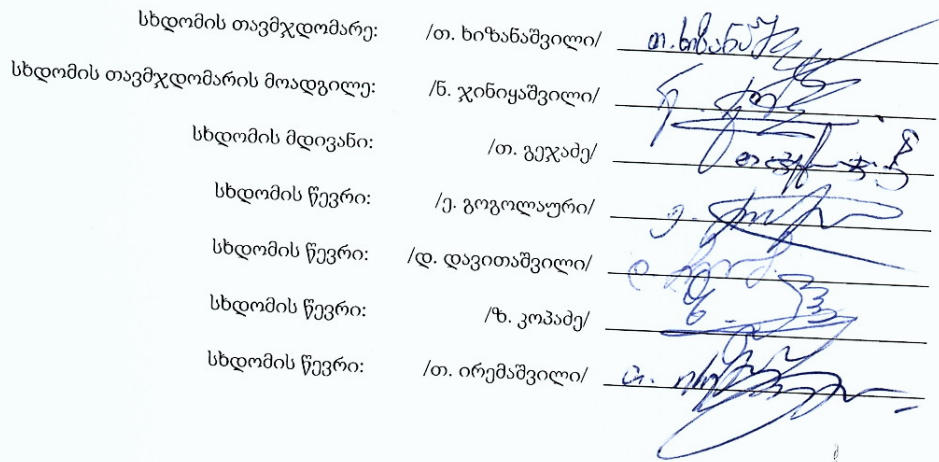 სხდომის თავმჯდომარე: /თ. ხიზანაშვილი/ თ. ხიზანაშ
სხდომის თავმჯდომარის მოადგილე: /ნ. ჯინიყაშვილი/
სხდომის მდივანი: /თ. გეჯაძე/
სხდომის წევრი: /ე. გოგოლაური/
სხდომის წევრი: /დ. დავითაშვილი/
სხდომის წევრი: /ზ. კოპაძე/
სხდომის წევრი: /თ. ირემაშვილი/